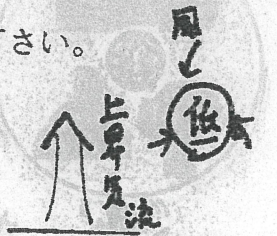 さい。
風
低
上昇気流